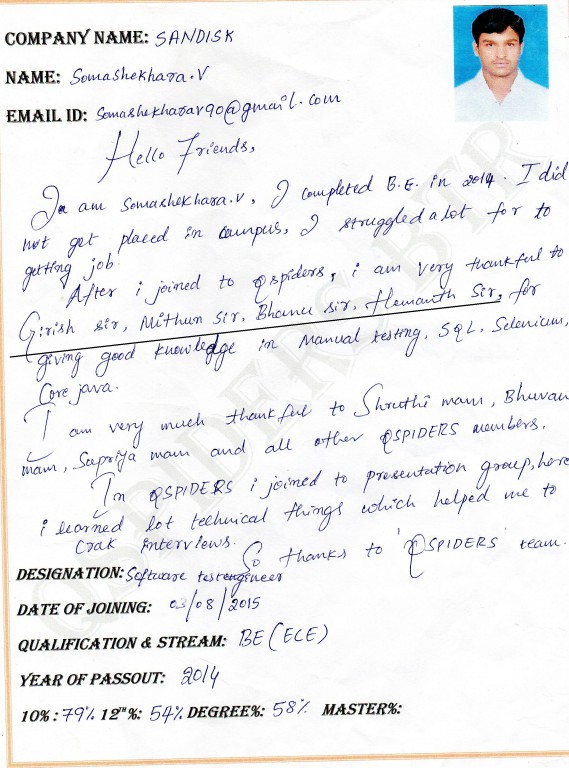 COMPANY NAME: SANDISK
NAME: Somashekhara.V
EMAIL ID: Somashekharav90@gmail.com
Hello Friends,
I am Somashekhara.V, I completed B.E. in 2014. I did
not get placed in campus, I struggled a lot for to
getting job.
After i joined to Qspiders, i am very thankful to
Girish sir, Mithun Sir, Bhanu sir, Hemanth Sir, for
giving good knowledge in Manual testing, SQL, Selenium,
Core java.
I am very much thankful to Shruthi mam, Bhuvan
mam, Supriya mam and all other QSPIDERS members.
In QSPIDERS i joined to presentation group, here
i learned lot technical things which helped me to
Crak interviews.
So thanks to 'QSPIDERS' team.
DESIGNATION: Software test engineer
DATE OF JOINING: 03/08/2015
QUALIFICATION & STREAM: BE (ECE)
YEAR OF PASSOUT: 2014
10% : 79% 12TH%: 54% DEGREE%: 58% MASTER%:
QSPIDERS BTR